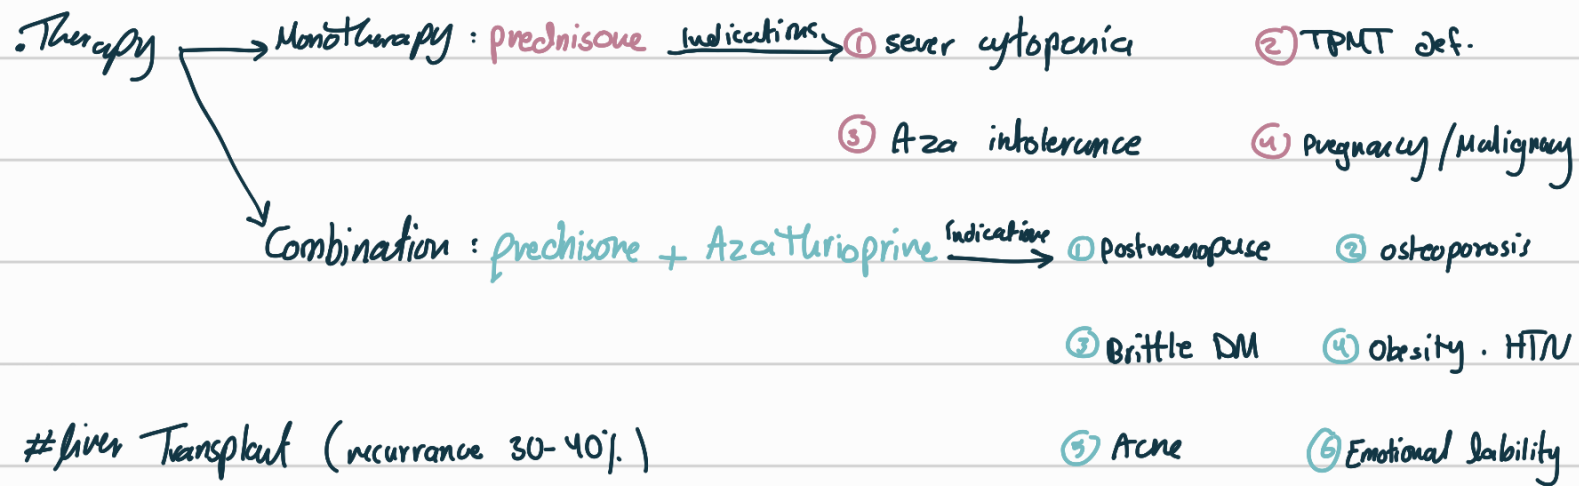 : Therapy → Monotherapy : prednisone Indications → ① sever cytopenia ② TPMT def.
③ Aza intolerance ④ Pregnancy / Malignacy
Combination : prednisone + Azathrioprine Indications → ① Postmenopuse ② osteoporosis
③ Brittle DM ④ Obesity . HTN
# liver Transplant (recurrance 30-40%) ⑤ Acne ⑥ Emotional lability